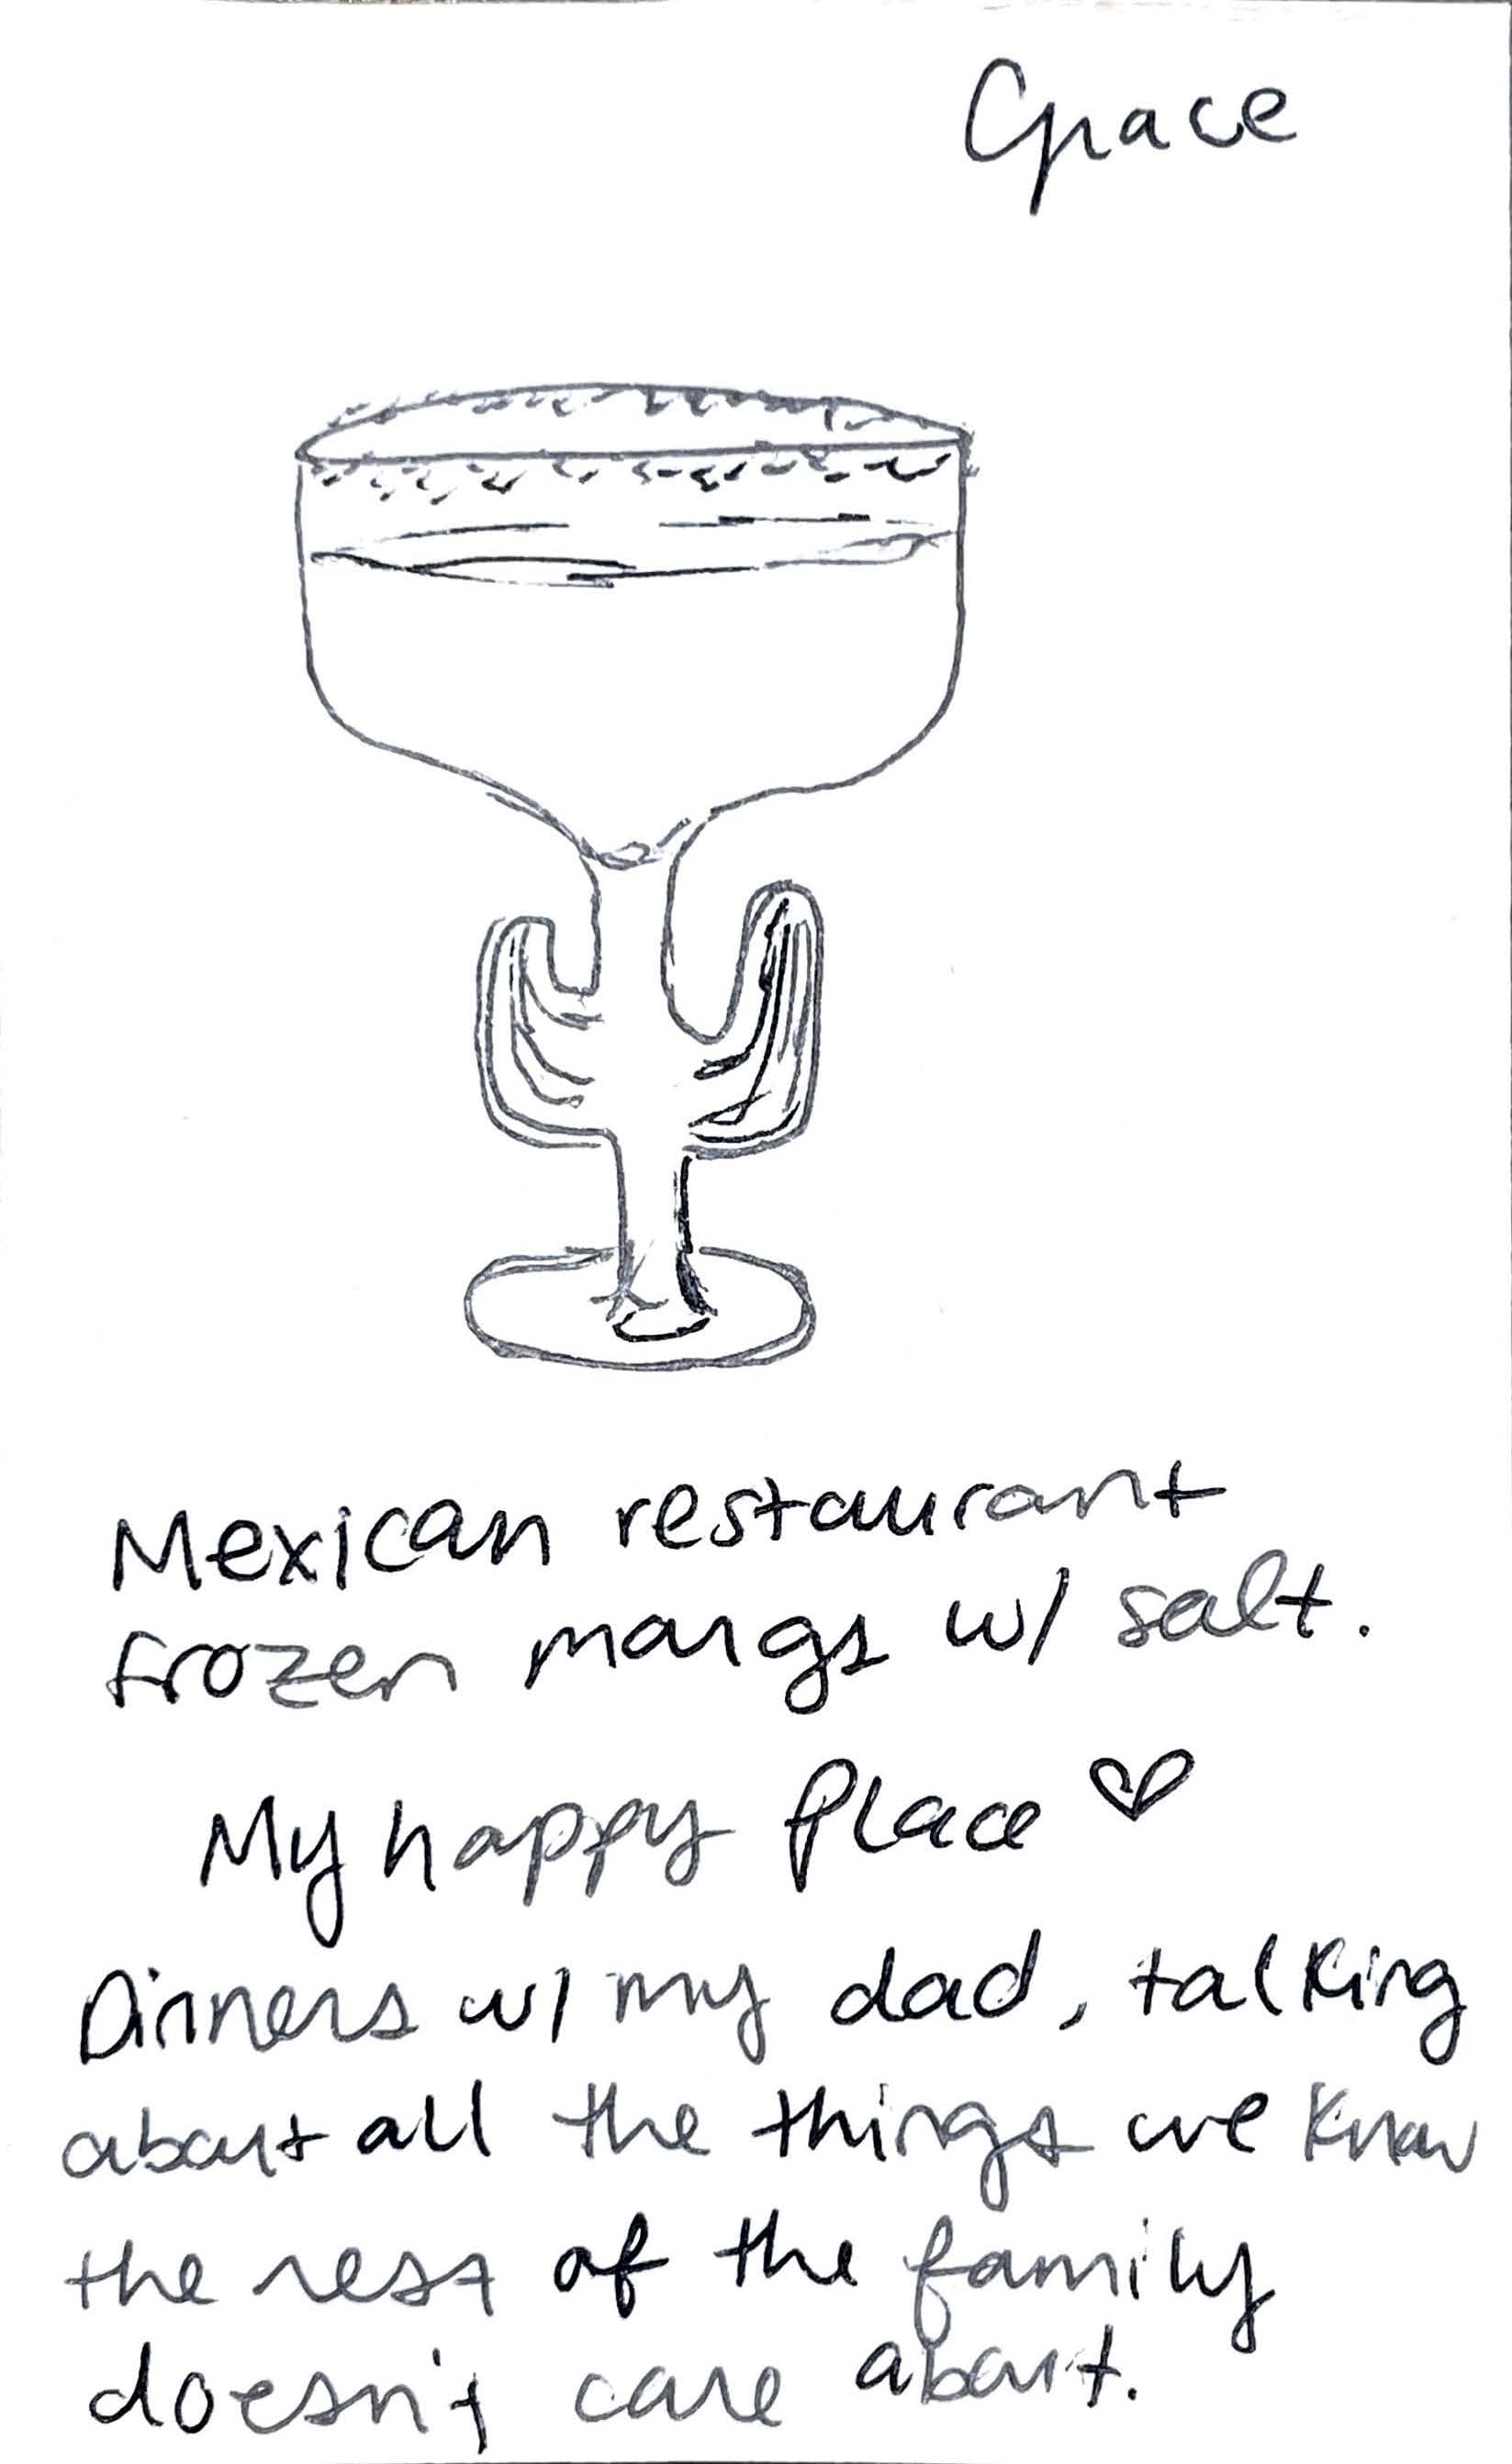 Grace
Mexican restaurant
frozen margs w/ salt.
My happy Place ♡
Dinners w/ my dad, talking
about all the things we know
the rest of the family
doesn't care about.